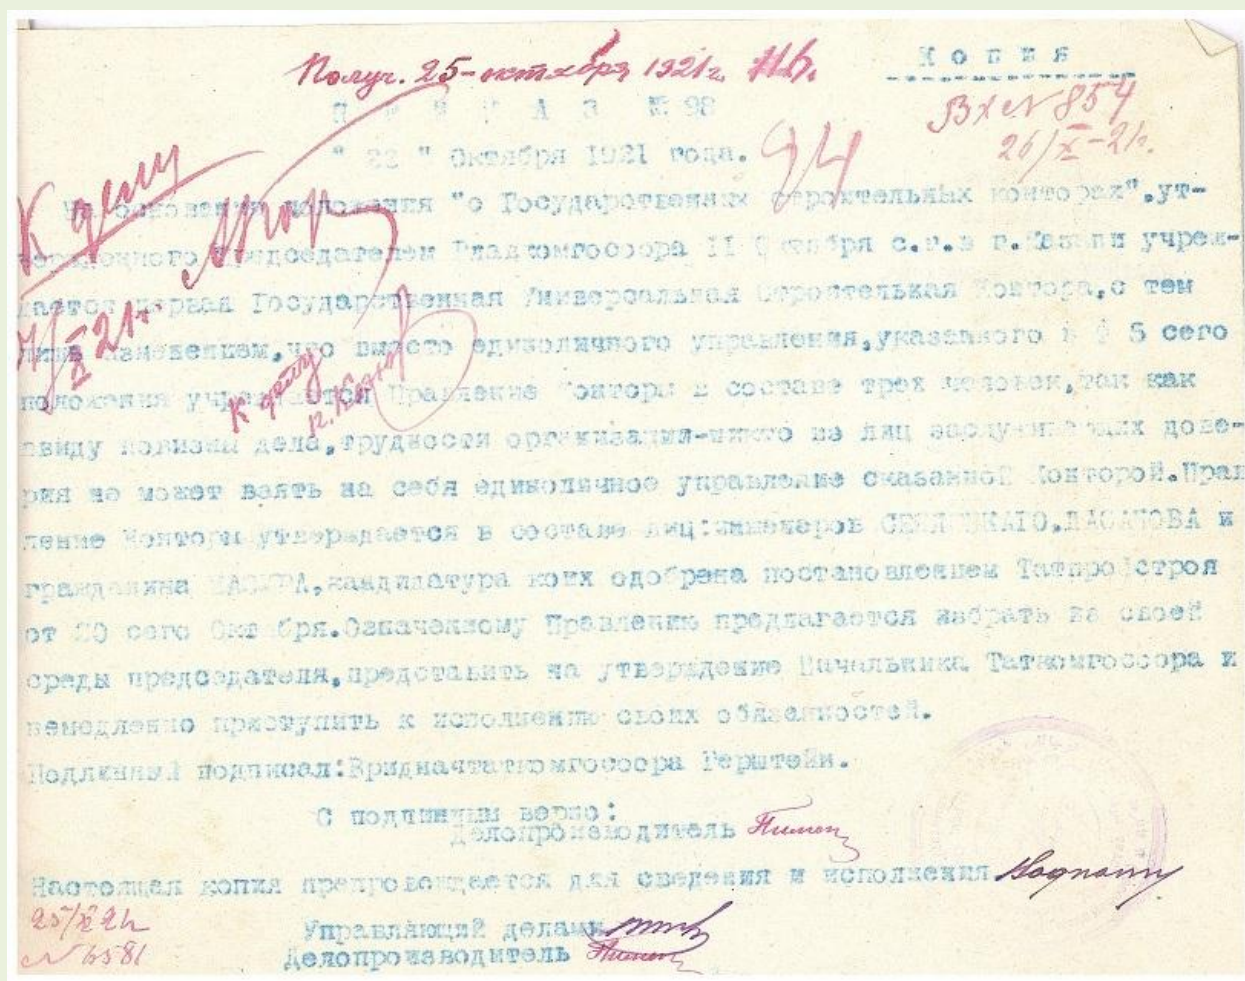 Копия
Получ. 25-октября 1921г.
Вх № 854
26/X-21г.
П Р И К А З № 98
" 22 " Октября 1921 года.
94
К делу
На основании положения "о Государственных строительных конторах", ут-
вержденного Председателем Главкомгосоора 11 Октября с.г. в г.Казани учреж-
дается первая Государственная Универсальная Строительная Контора, с тем
лишь изменением, что вместо единоличного управления, указанного в § 5 сего
положения учреждается Правление Конторы в составе трех человек, так как
ввиду новизны дела, трудности организации-никто из лиц заслуживающих дове-
рия не может взять на себя единоличное управление сказанной Конторой. Прав
ление Конторы утверждается в составе лиц: инженеров и
гражданина кандидатура коих одобрена постановлением Татпромстроя
от 20 сего Октября. Означенному Правлению предлагается избрать из своей
среды председателя, представить на утверждение Начальника Таткомгосоора и
немедленно приступить к исполнению своих обязанностей.
К делу
Подлинный подписал: Вридначтаткомгосоора Герштейн.
С подлинным верно:
Делопроизводитель
Настоящая копия препровождается для сведения и исполнения
25/X 21г
№ 6581
Управляющий делами
Делопроизводитель